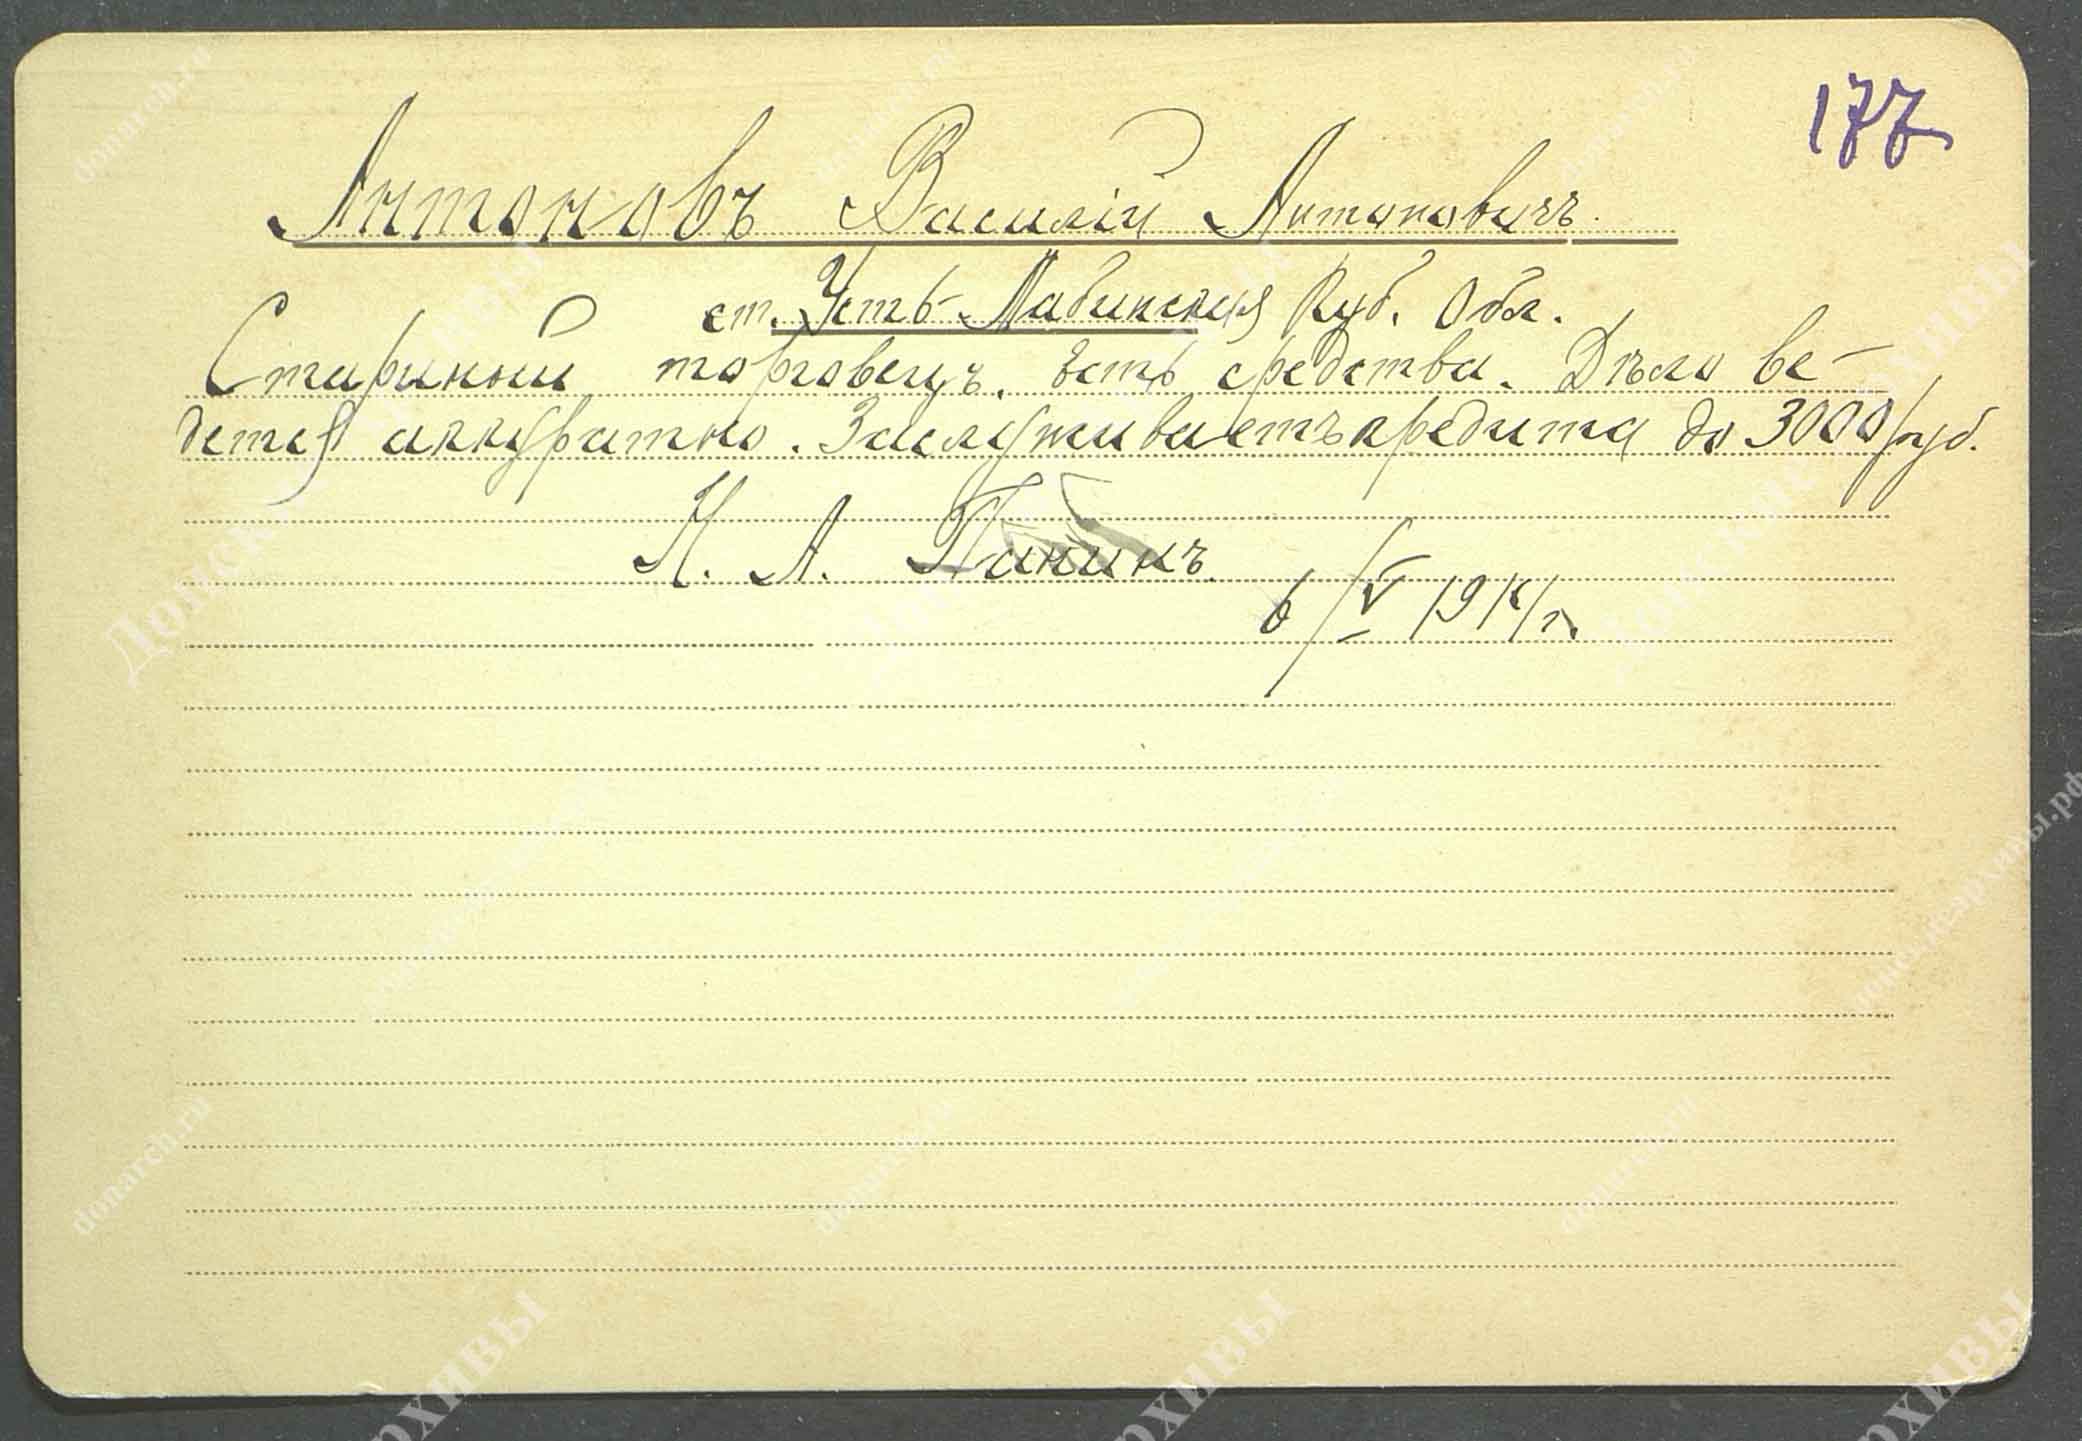 177
Антоновъ Василій Антоновичъ.
ст. Усть-Лабинская Куб. Обл.
Старинный торговецъ. Есть средства. Дѣло ве-
дется аккуратно. Заслуживаетъ кредита до 3000 руб.
А. Панинъ.
6/V 1914 г.
donarch.ru